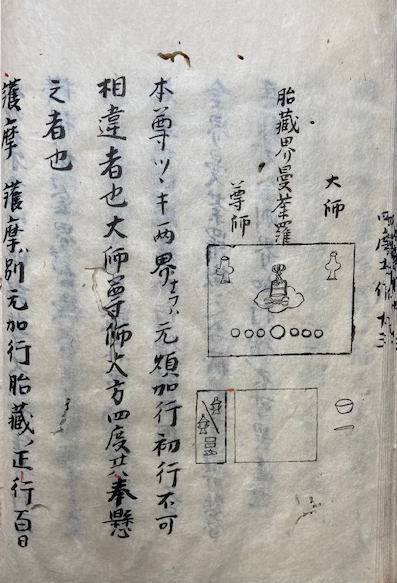 大師
胎藏界曼荼羅
尊師
本尊ツ、キ两界ナラハ元頗加行初行不可
相違者也大師尊師大方四度共奉懸
之者也
護摩 護摩別元加行胎藏ノ正行百日